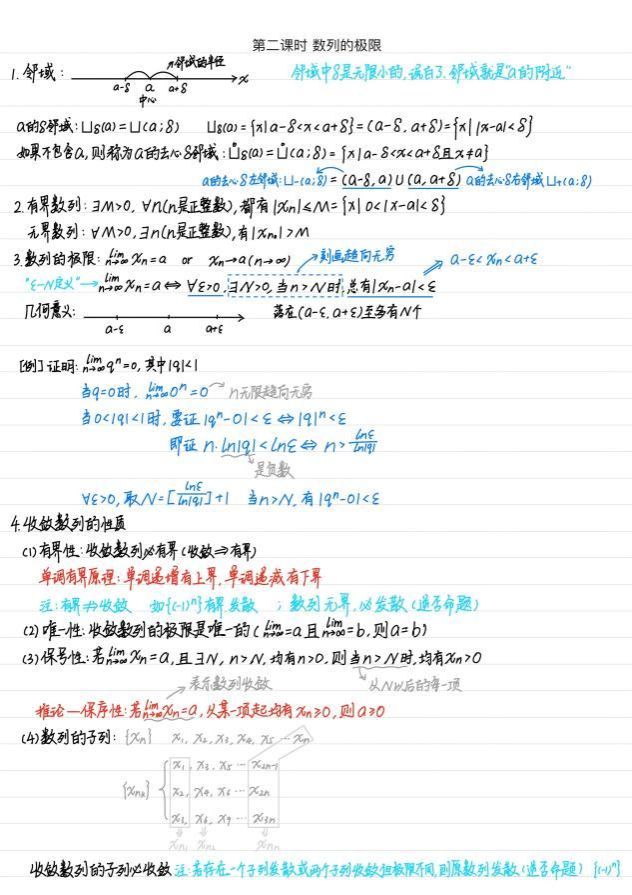 第二课时 数列的极限
1. 邻域: a-δ a a+δ x 中心 邻域的半径
邻域中δ是无限小的,说白了,邻域就是"a的附近"
a的δ邻域: ∪δ(a)=∪(a;δ) ∪δ(a)={x|a-δ<x<a+δ}=(a-δ,a+δ)={x||x-a|<δ}
如果不包含a,则称为a的去心δ邻域: ů δ(a)=ů(a;δ)={x|a-δ<x<a+δ且x≠a}
a的去心δ左邻域:∪-(a;δ)=(a-δ,a)∪(a,a+δ) a的去心δ右邻域∪+(a;δ)
2. 有界数列: ∃M>0, ∀n(n是正整数),都有|xn|≤M={x|0<|x-a|<δ}
无界数列: ∀M>0,∃n(n是正整数),有|xn₀|>M
3. 数列的极限: lim n→∞ xn=a or xn→a(n→∞) 刻画趋向无穷 a-ε<xn<a+ε
"ε-N定义"→lim n→∞ xn=a⇔∀ε>0,∃N>0,当n>N时,总有|xn-a|<ε
几何意义: a-ε a a+ε 落在(a-ε,a+ε)至多有N个
[例]证明: lim n→∞ qⁿ=0,其中|q|<1
当q=0时, lim n→∞ 0ⁿ=0 n无限趋向无穷
当0<|q|<1时,要证|qⁿ-0|<ε⇔|q|ⁿ<ε
即证 n·ln|q|<lnε⇔n>lnε/ln|q|
是负数
∀ε>0,取N=[lnε/ln|q|]+1 当n>N,有|qⁿ-0|<ε
4. 收敛数列的性质
(1)有界性:收敛数列必有界(收敛⇒有界)
单调有界原理:单调递增有上界,单调递减有下界
注:有界⇏收敛 如{(-1)ⁿ}有界发散 ;数列无界,必发散(逆否命题)
(2)唯一性:收敛数列的极限是唯一的(lim n→∞=a且lim n→∞=b,则a=b)
(3)保号性:若lim n→∞ xn=a,且∃N,n>N,均有n>0,则当n>N时,均有xn>0
表示数列收敛 从N以后的每一项
推论—保序性:若lim n→∞ xn=a,从某一项起均有xn≥0,则a≥0
(4)数列的子列: {xn} x₁,x₂,x₃,x₄,x₅…xn
x₁,x₃,x₅…x₂n-₁
{xnk} x₂,x₄,x₆…x₂n
x₃,x₆,x₉…x₃n
xn₁ xn₂ xnn
收敛数列的子列必收敛 注:若存在一个子列发散或两个子列收敛但极限不同,则原数列发散(逆否命题) {(-1)ⁿ}